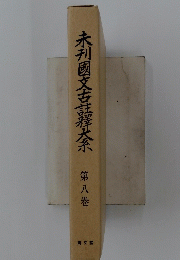 未刊國文古註釋大系
第八巻